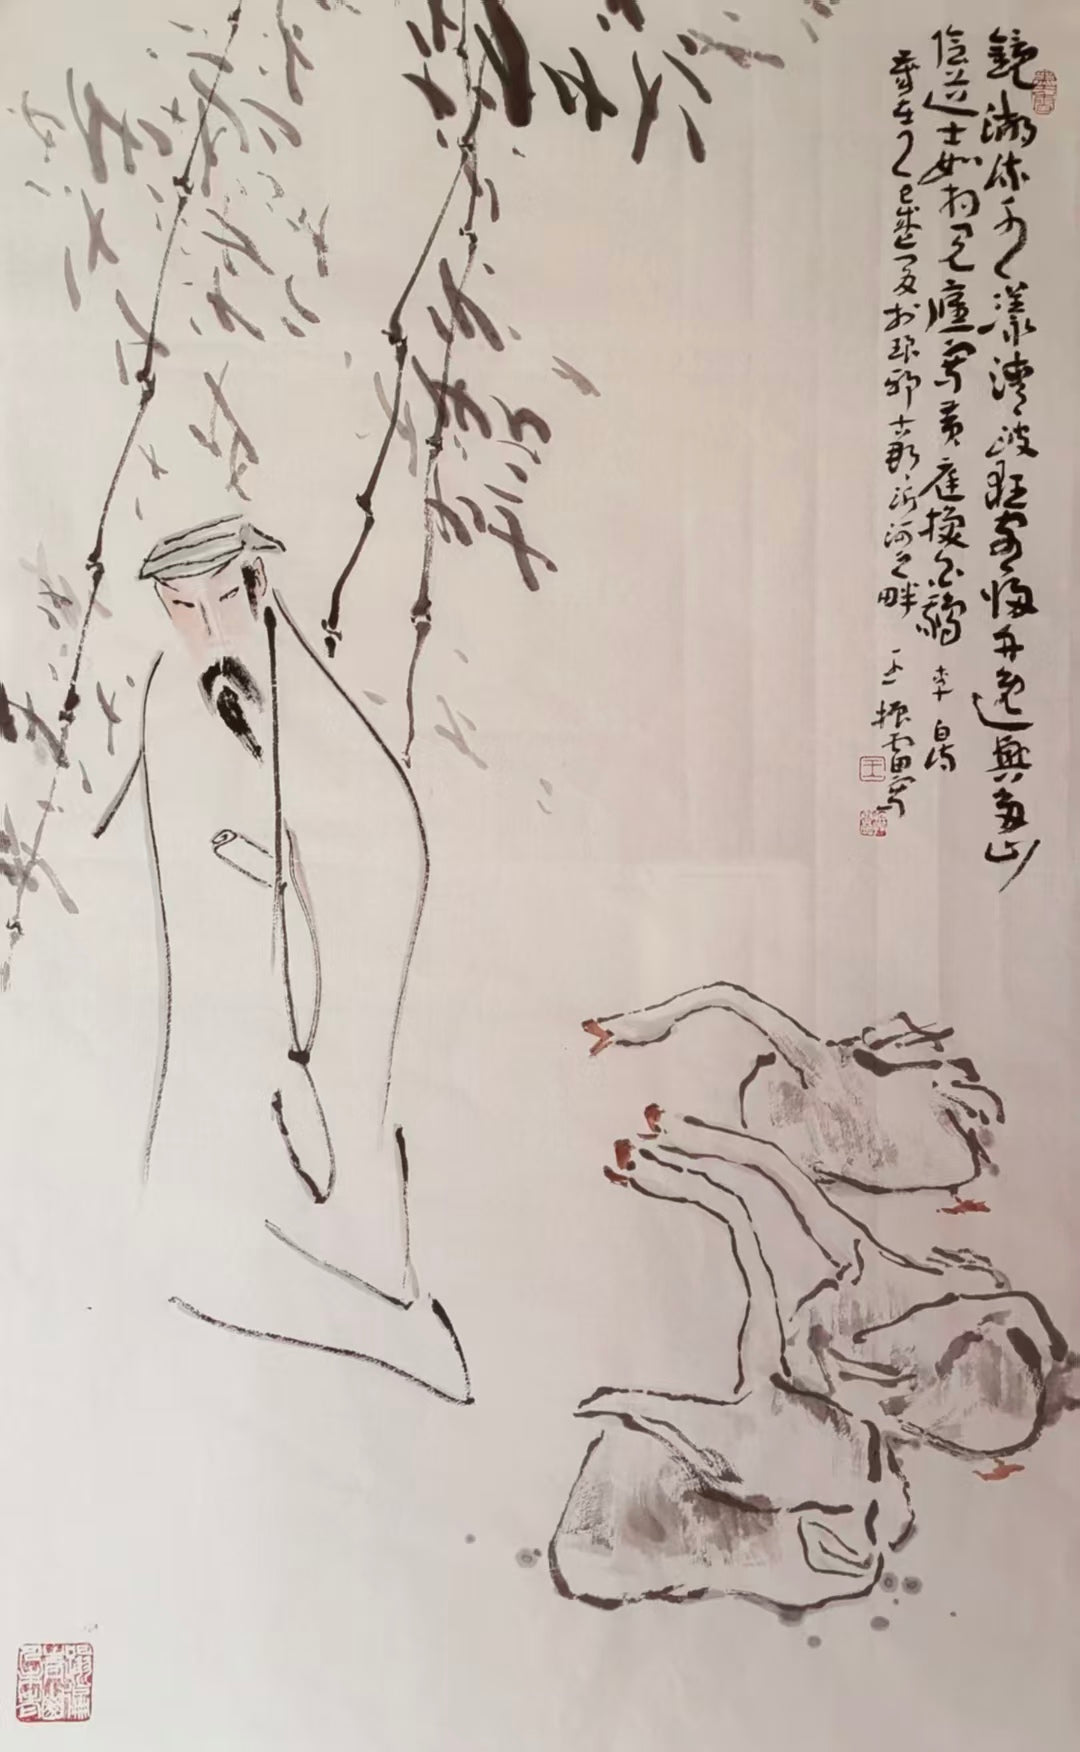 鏡湖流水漾清波狂客歸舟逸興多山
陰道士如相見應寫黃庭換白鵝 李白詩
歲在乙巳盛夏於琅邪古郡沂河之畔 王振雷寫
王